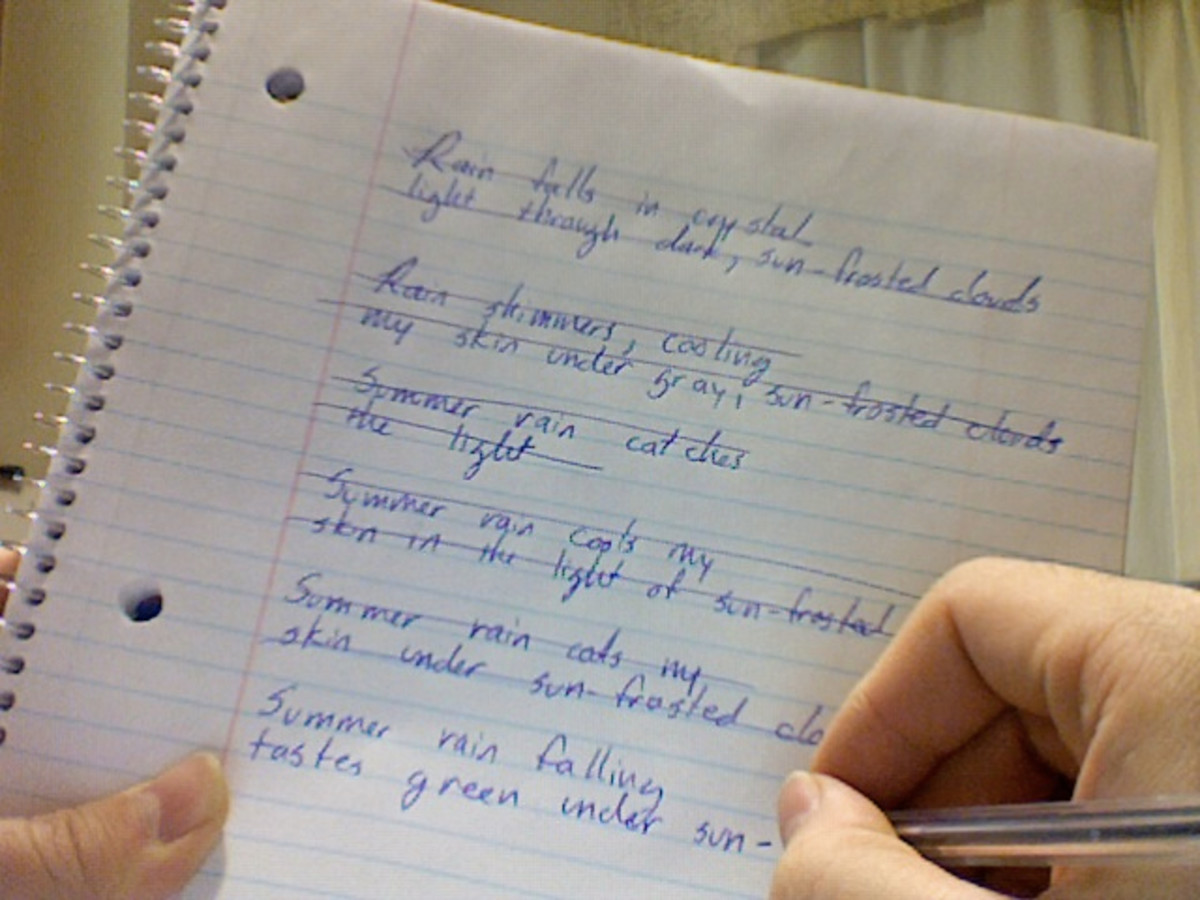 Rain falls in crystal
light through dark, sun-frosted clouds
Rain shimmers, cooling
my skin under gray, sun-frosted clouds
Summer rain catches
the light
Summer rain cools my
skin in the light of sun-frosted
Summer rain cools my
skin under sun-frosted clo
Summer rain falling
tastes green under sun-